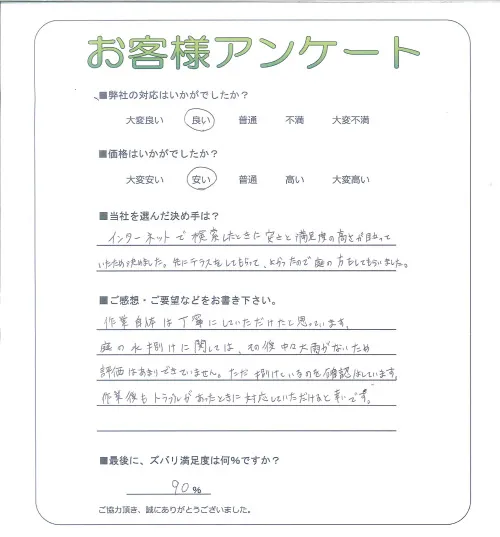 お客様アンケート
■弊社の対応はいかがでしたか？
大変良い 良い 普通 不満 大変不満
■価格はいかがでしたか？
大変安い 安い 普通 高い 大変高い
■当社を選んだ決め手は？
インターネットで検索したときに安さと満足度の高さが目立って
いたため決めました。先にテラスをしてもらって、よかったので庭の方もしてもらいました。
■ご感想・ご要望などをお書き下さい。
作業自体は丁寧にしていただけたと思っています。
庭の水捌けに関しては、その後中々大雨がないため
評価はあまりできていません。ただ捌けているのを確認はしています。
作業後もトラブルがあったときに対応していただけると幸いです。
■最後に、ズバリ満足度は何%ですか？
90%
ご協力頂き、誠にありがとうございました。